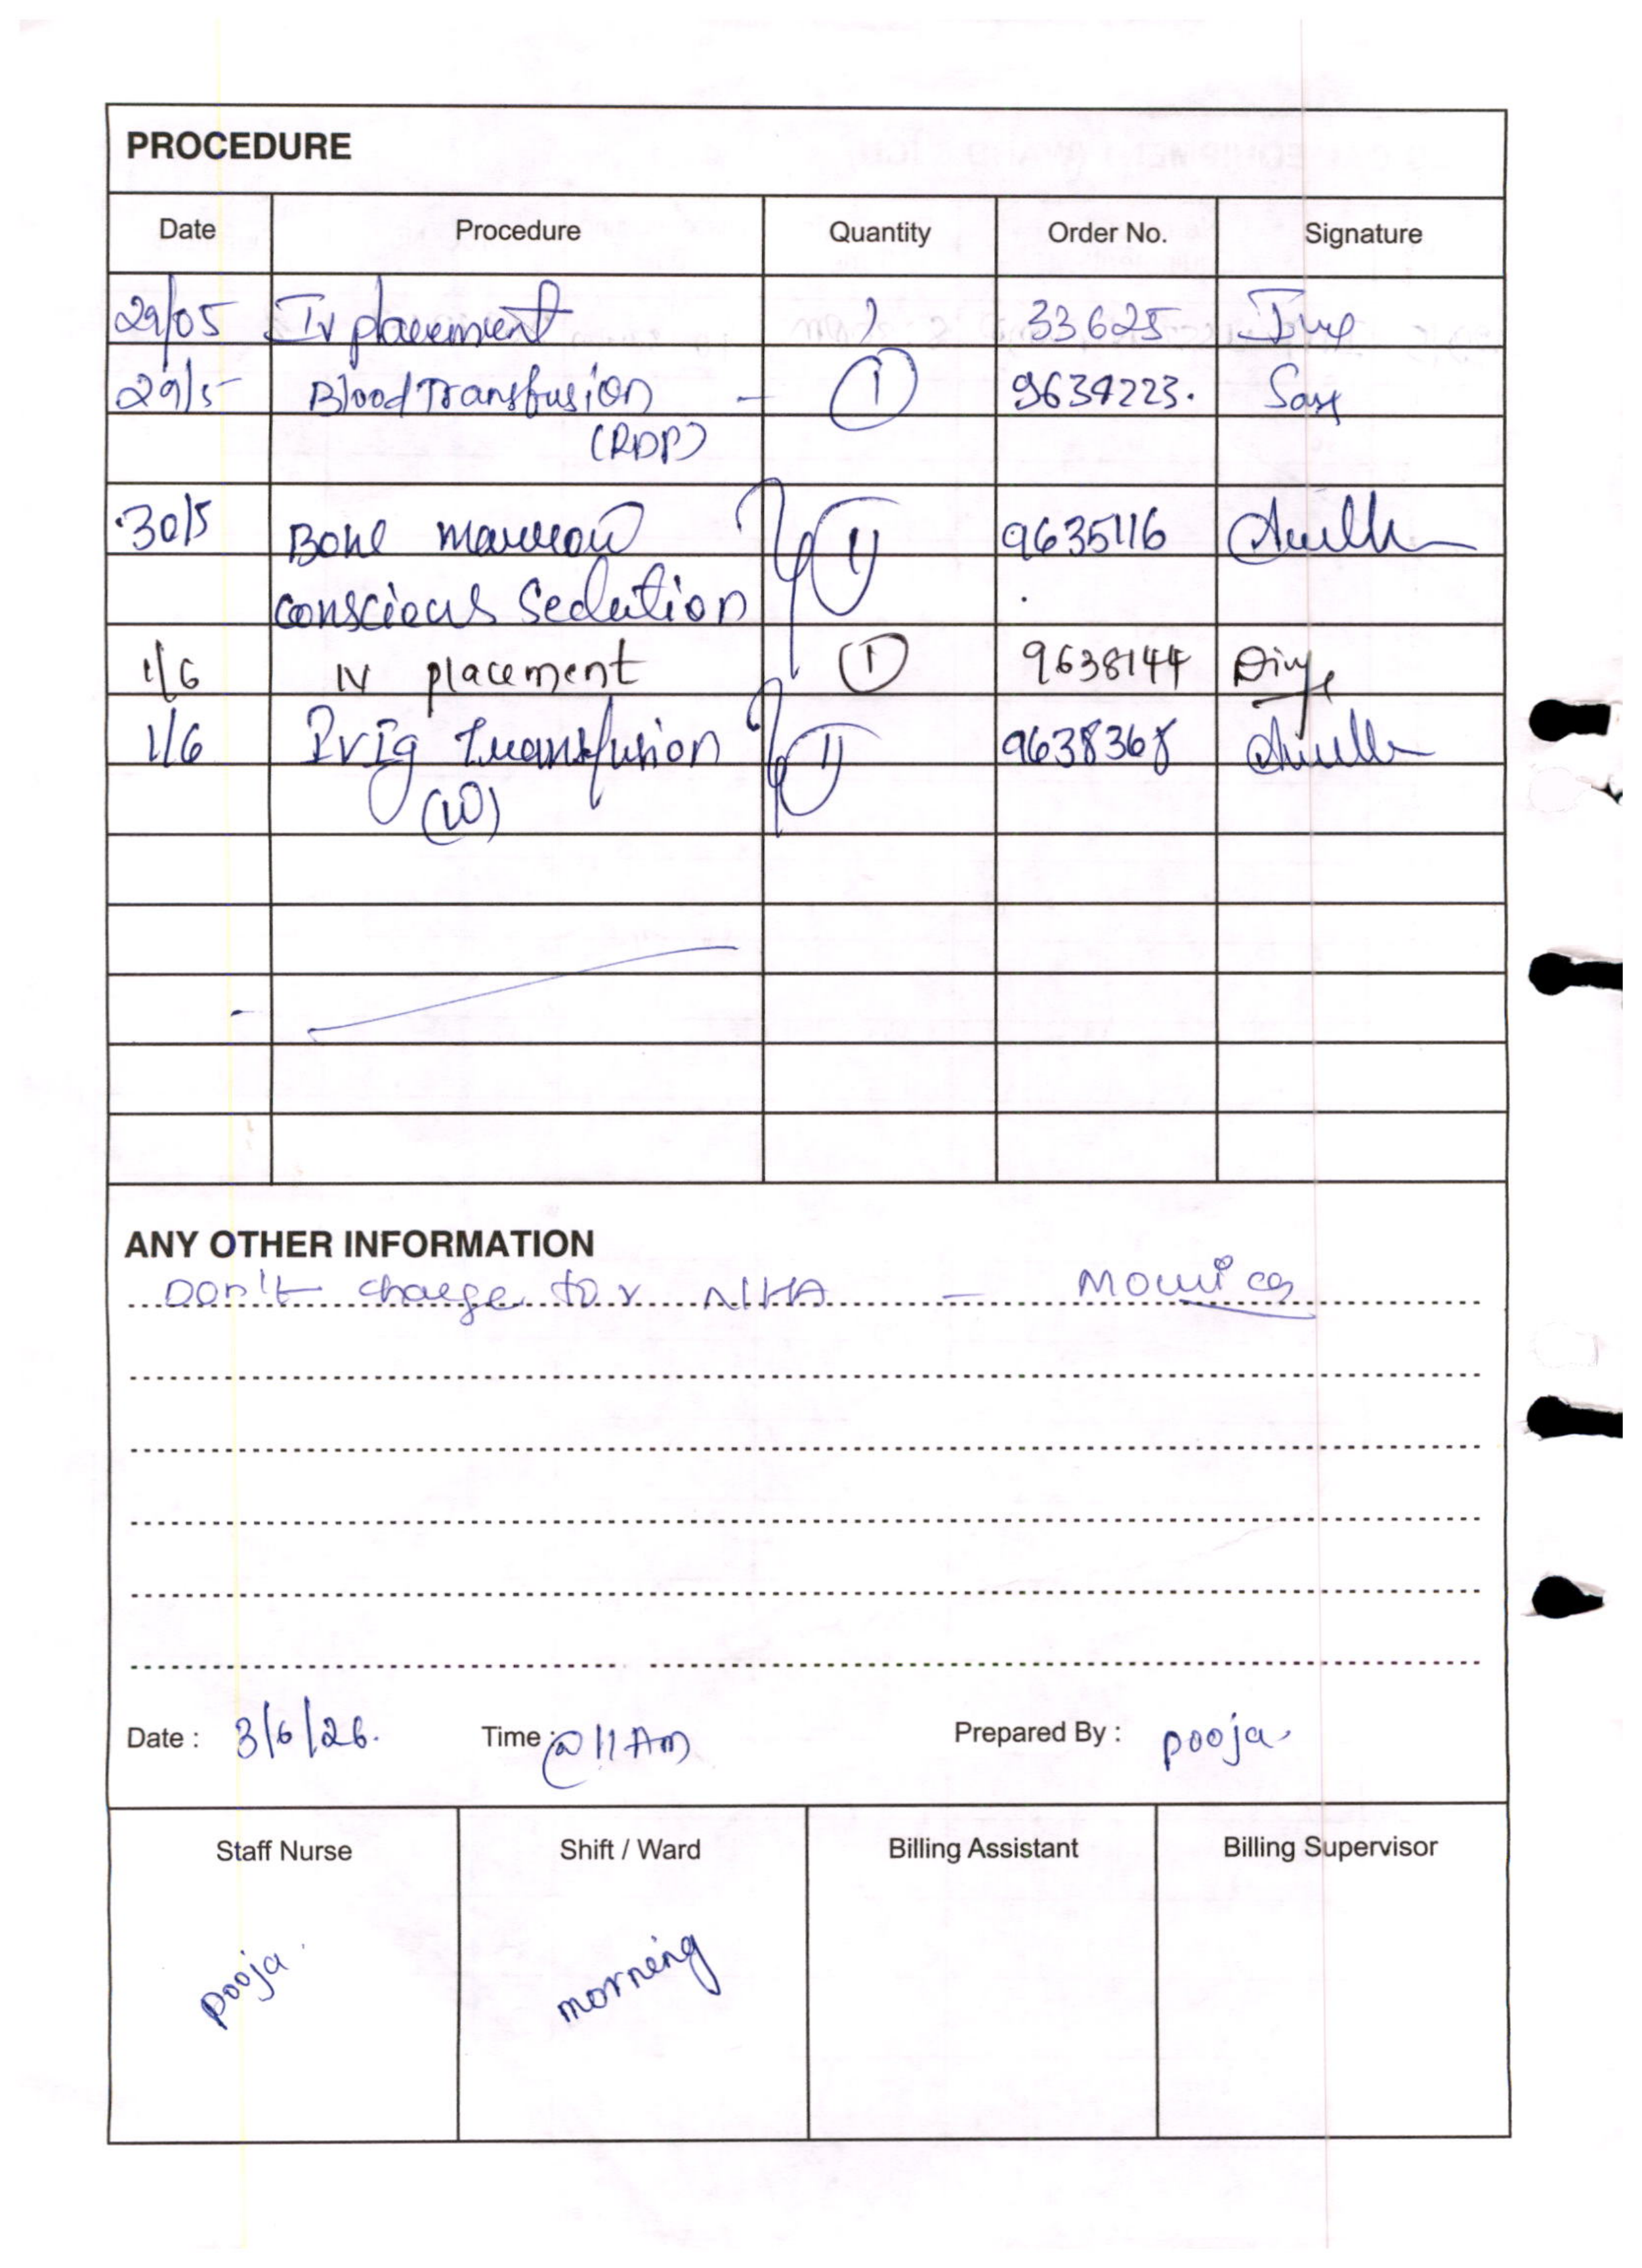 PROCEDURE
Date Procedure Quantity Order No. Signature
29/05 IV placement 1 33625
29/5 Blood Transfusion - 1 9634223.
(RDP)
30/5 Bone marrow 1 9635116
conscious Sedation
1/6 IV placement 1 9638144
1/6 IVIg transfusion 1 9638368
ANY OTHER INFORMATION
Don't charge for NIHA -
Date : 3/6/26. Time : @ 11 Am Prepared By : pooja.
Staff Nurse Shift / Ward Billing Assistant Billing Supervisor
pooja. morning